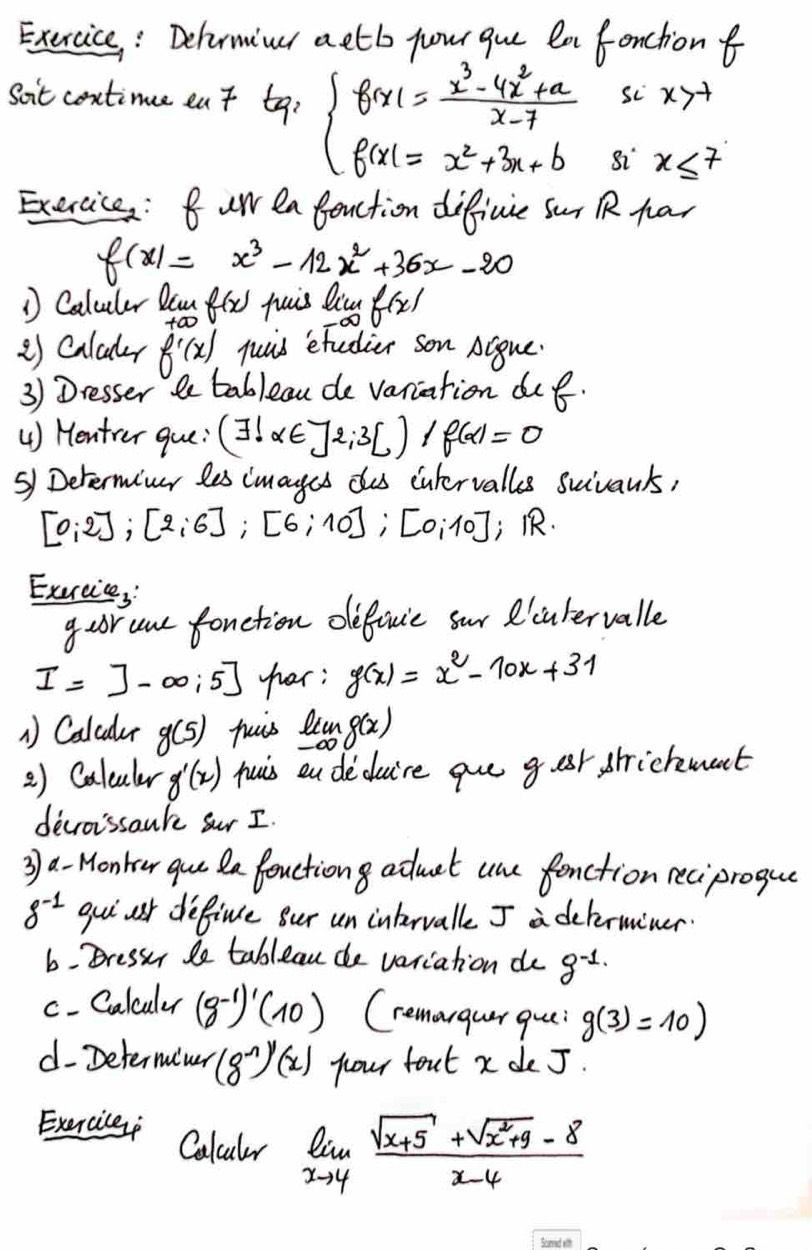 Exercice1 : Determiner a et b pour que la fonction f
soit continue en 7 tq: { f(x) = (x³ - 4x² + a)/(x - 7) si x > 7
f(x) = x² + 3x + b si x ≤ 7
Exercice2 : f est la fonction définie sur ℝ par
f(x) = x³ - 12x² + 36x - 20
1) Calculer lim +∞ f(x) puis lim -∞ f(x)
2) Calculer f'(x) puis étudier son signe.
3) Dresser le tableau de variation de f.
4) Montrer que : (∃! α ∈ ]2;3[ ) / f(α) = 0
5) Determiner les images des intervalles suivants,
[0;2] ; [2;6] ; [6;10] ; [0;10] ; ℝ.
Exercice3 :
g est une fonction définie sur l'intervalle
I = ]-∞;5] par : g(x) = x² - 10x + 31
1) Calculer g(5) puis lim -∞ g(x)
2) Calculer g'(x) puis en déduire que g est strictement
décroissante sur I.
3) a- Montrer que la fonction g admet une fonction reciproque
g⁻¹ qui est définie sur un intervalle J à determiner.
b - Dresser le tableau de variation de g⁻¹.
c - Calculer (g⁻¹)'(10) (remarquer que : g(3) = 10)
d - Determiner (g⁻¹)'(x) pour tout x de J.
Exercice4 :
Calculer lim x→4 (√(x+5) + √(x²+9) - 8)/(x - 4)
Scanned with